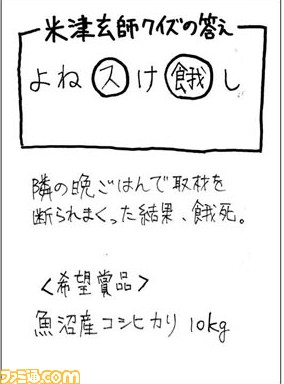 米津玄師クイズの答え
よねスけ餓し
隣の晩ごはんで取材を
断られまくった結果、餓死。
<希望賞品>
魚沼産コシヒカリ 10kg
ファミ通.com